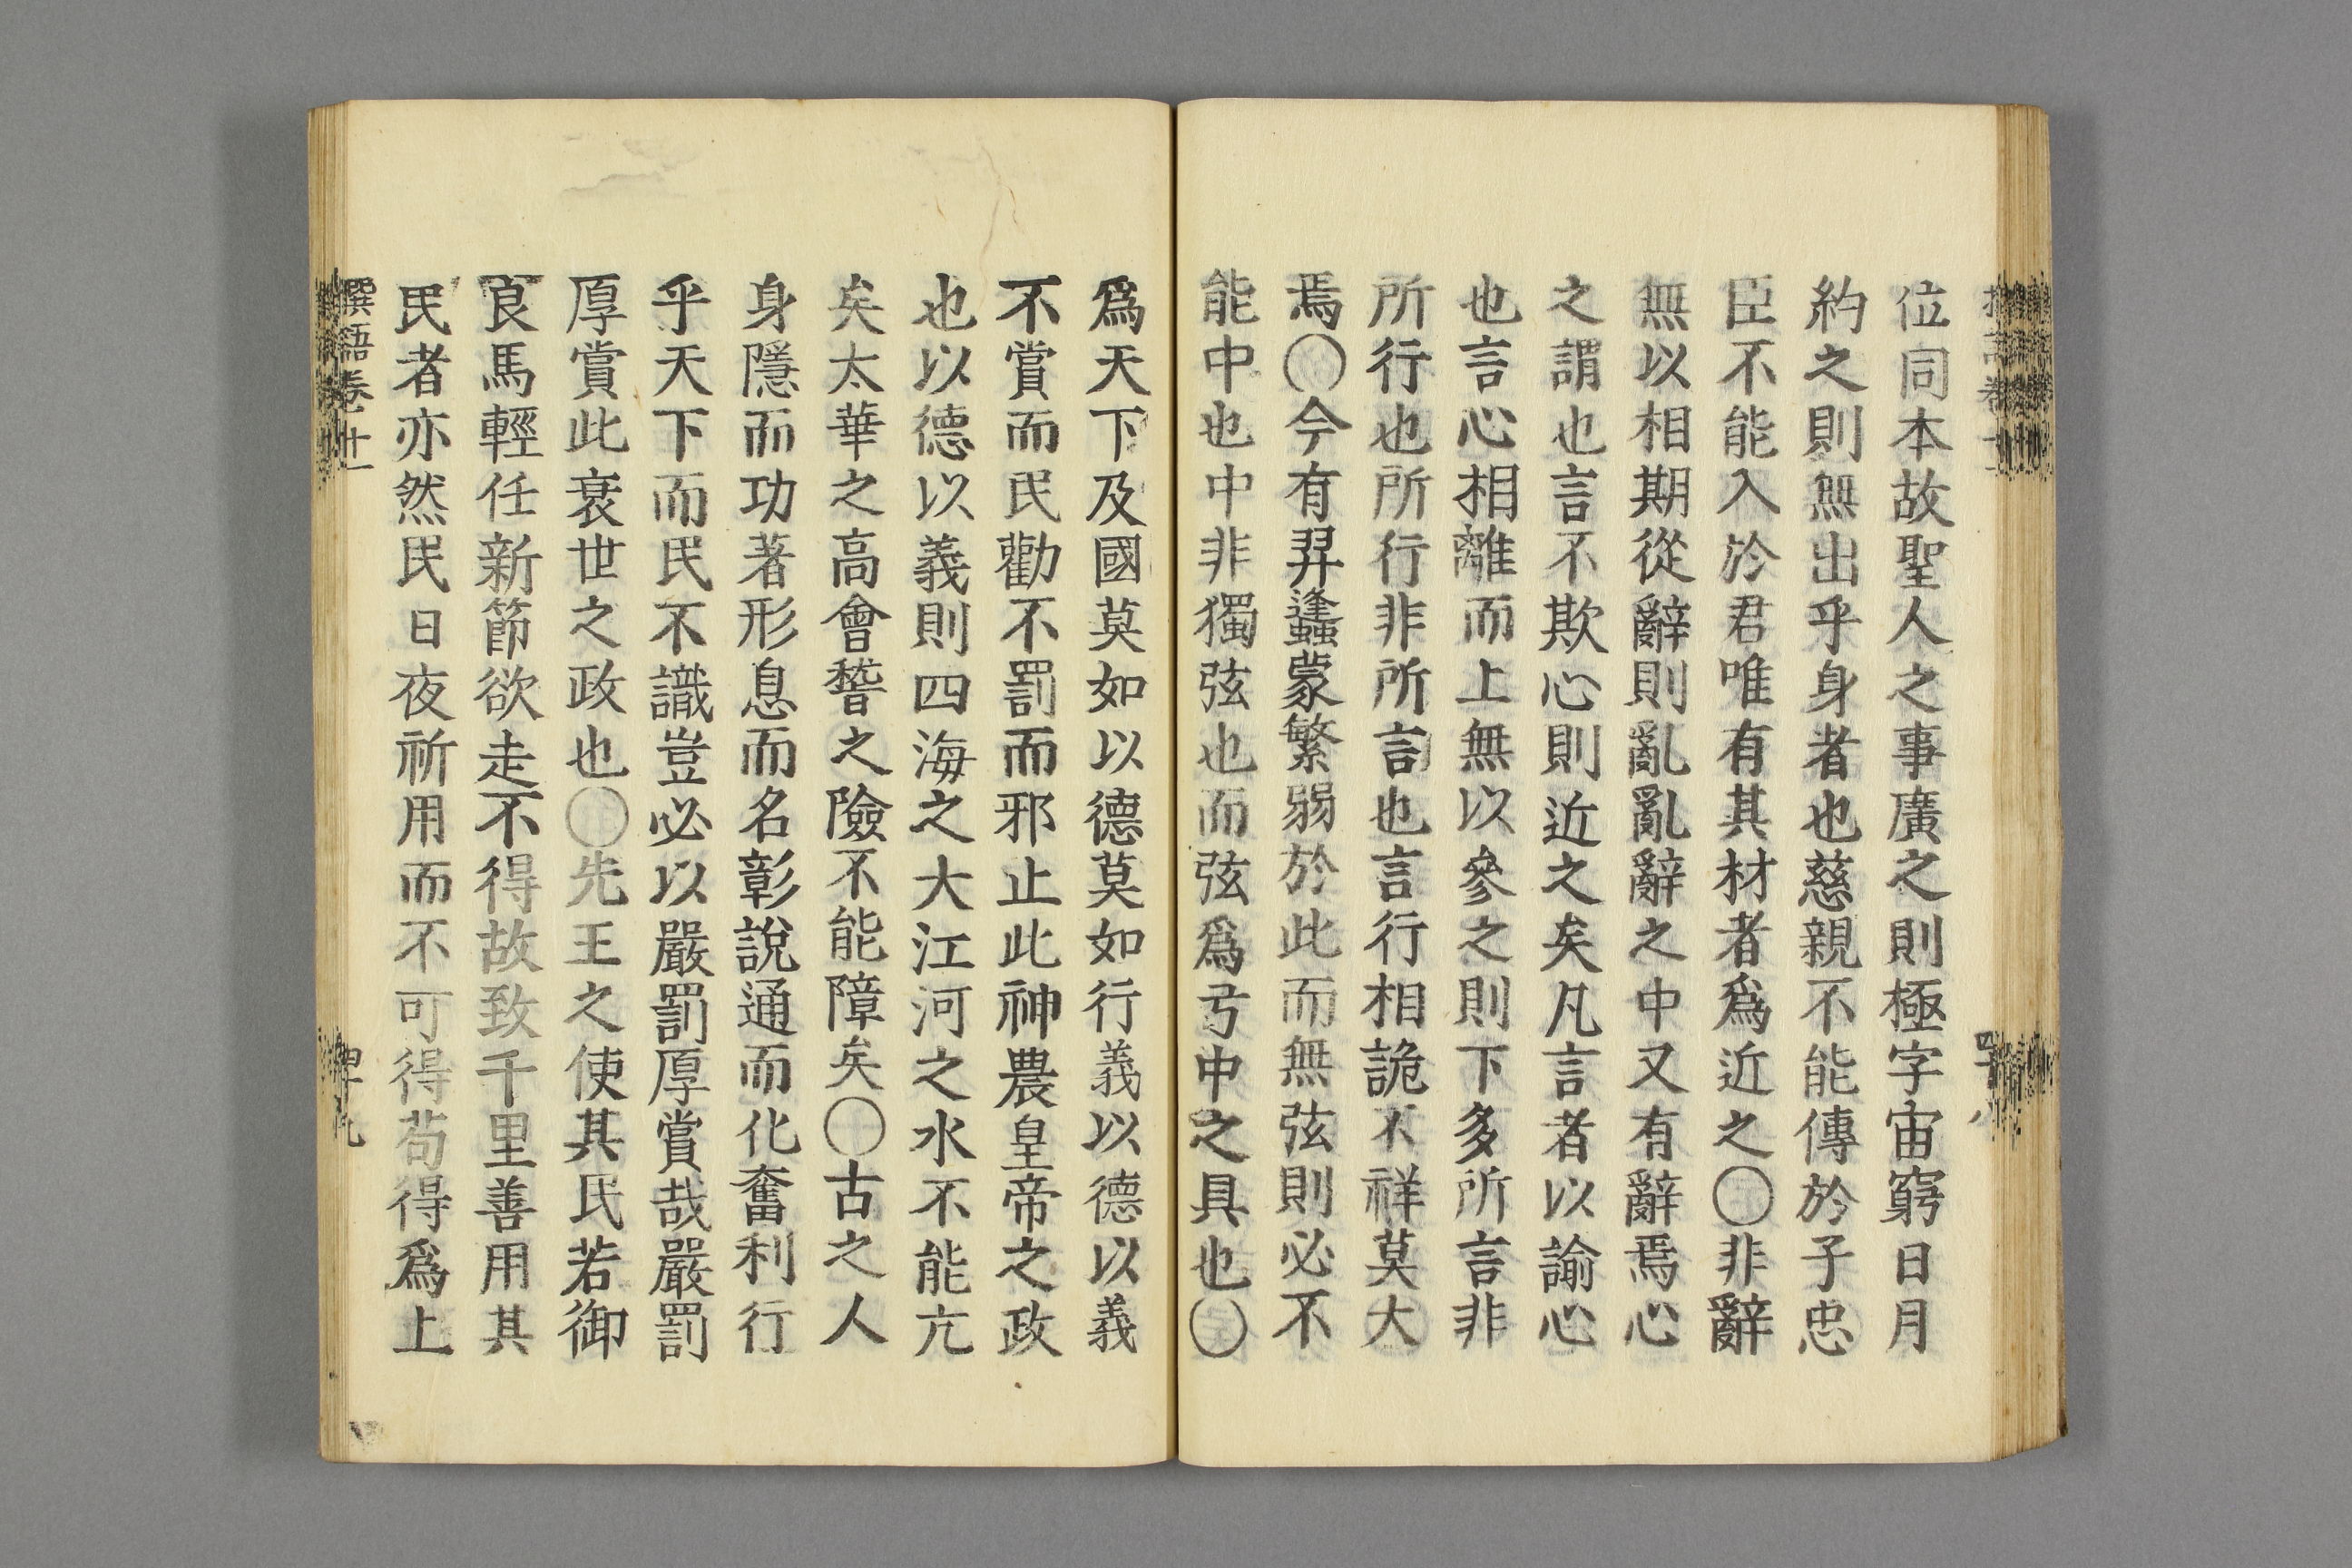 位同本故聖人之事廣之則極宇宙窮日月
約之則無出乎身者也慈親不能傳於子忠
臣不能入於君唯有其材者爲近之〇非辭
無以相期從辭則亂亂辭之中又有辭焉心
之謂也言不欺心則近之矣凡言者以諭心
也言心相離而上無以參之則下多所言非
所行也所行非所言也言行相詭不祥莫大
焉〇今有羿蠭蒙繁弱於此而無弦則必不
能中也中非獨弦也而弦爲弓中之具也〇
爲天下及國莫如以德莫如行義以德以義
不賞而民勸不罰而邪止此神農皇帝之政
也以德以義則四海之大江河之水不能亢
矣太華之高會稽之險不能障矣〇古之人
身隱而功著形息而名彰說通而化奮利行
乎天下而民不識豈必以嚴罰厚賞哉嚴罰
厚賞此衰世之政也〇先王之使其民若御
良馬輕任新節欲走不得故致千里善用其
民者亦然民日夜祈用而不可得苟得爲上
撰語卷十一
四十九